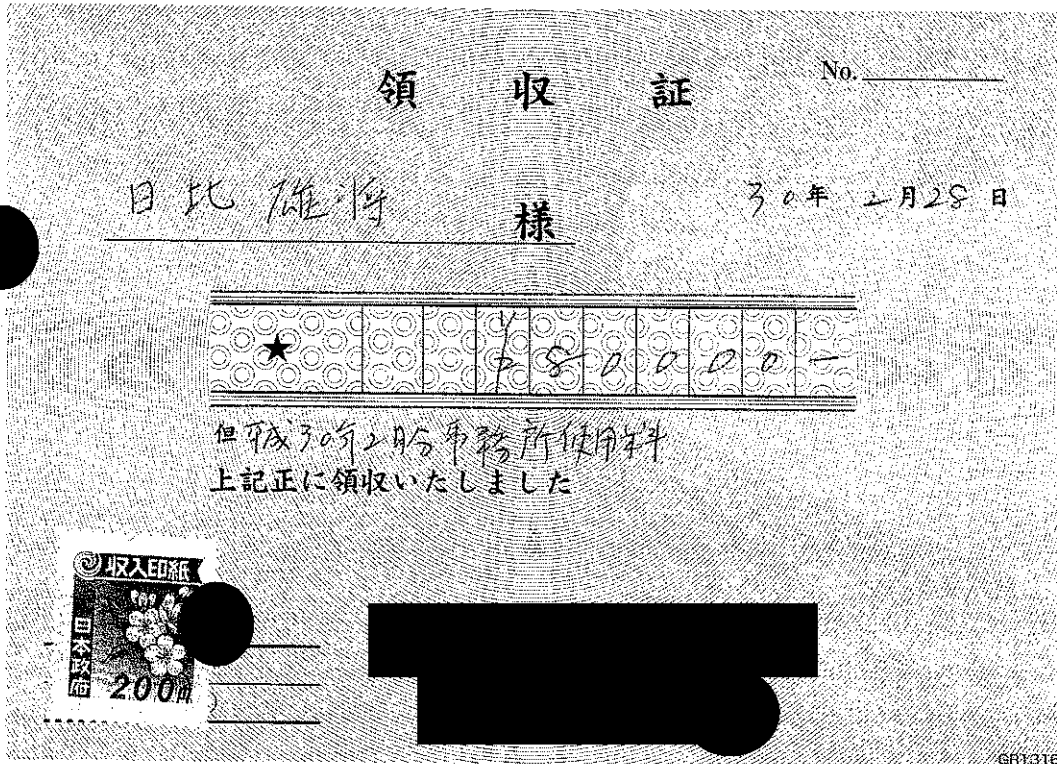 領収証
No.
日比雄将 様
30年 2月28日
★ ¥80000-
但 平成30年2月分事務所使用料
上記正に領収いたしました
収入印紙
日本政府
200円